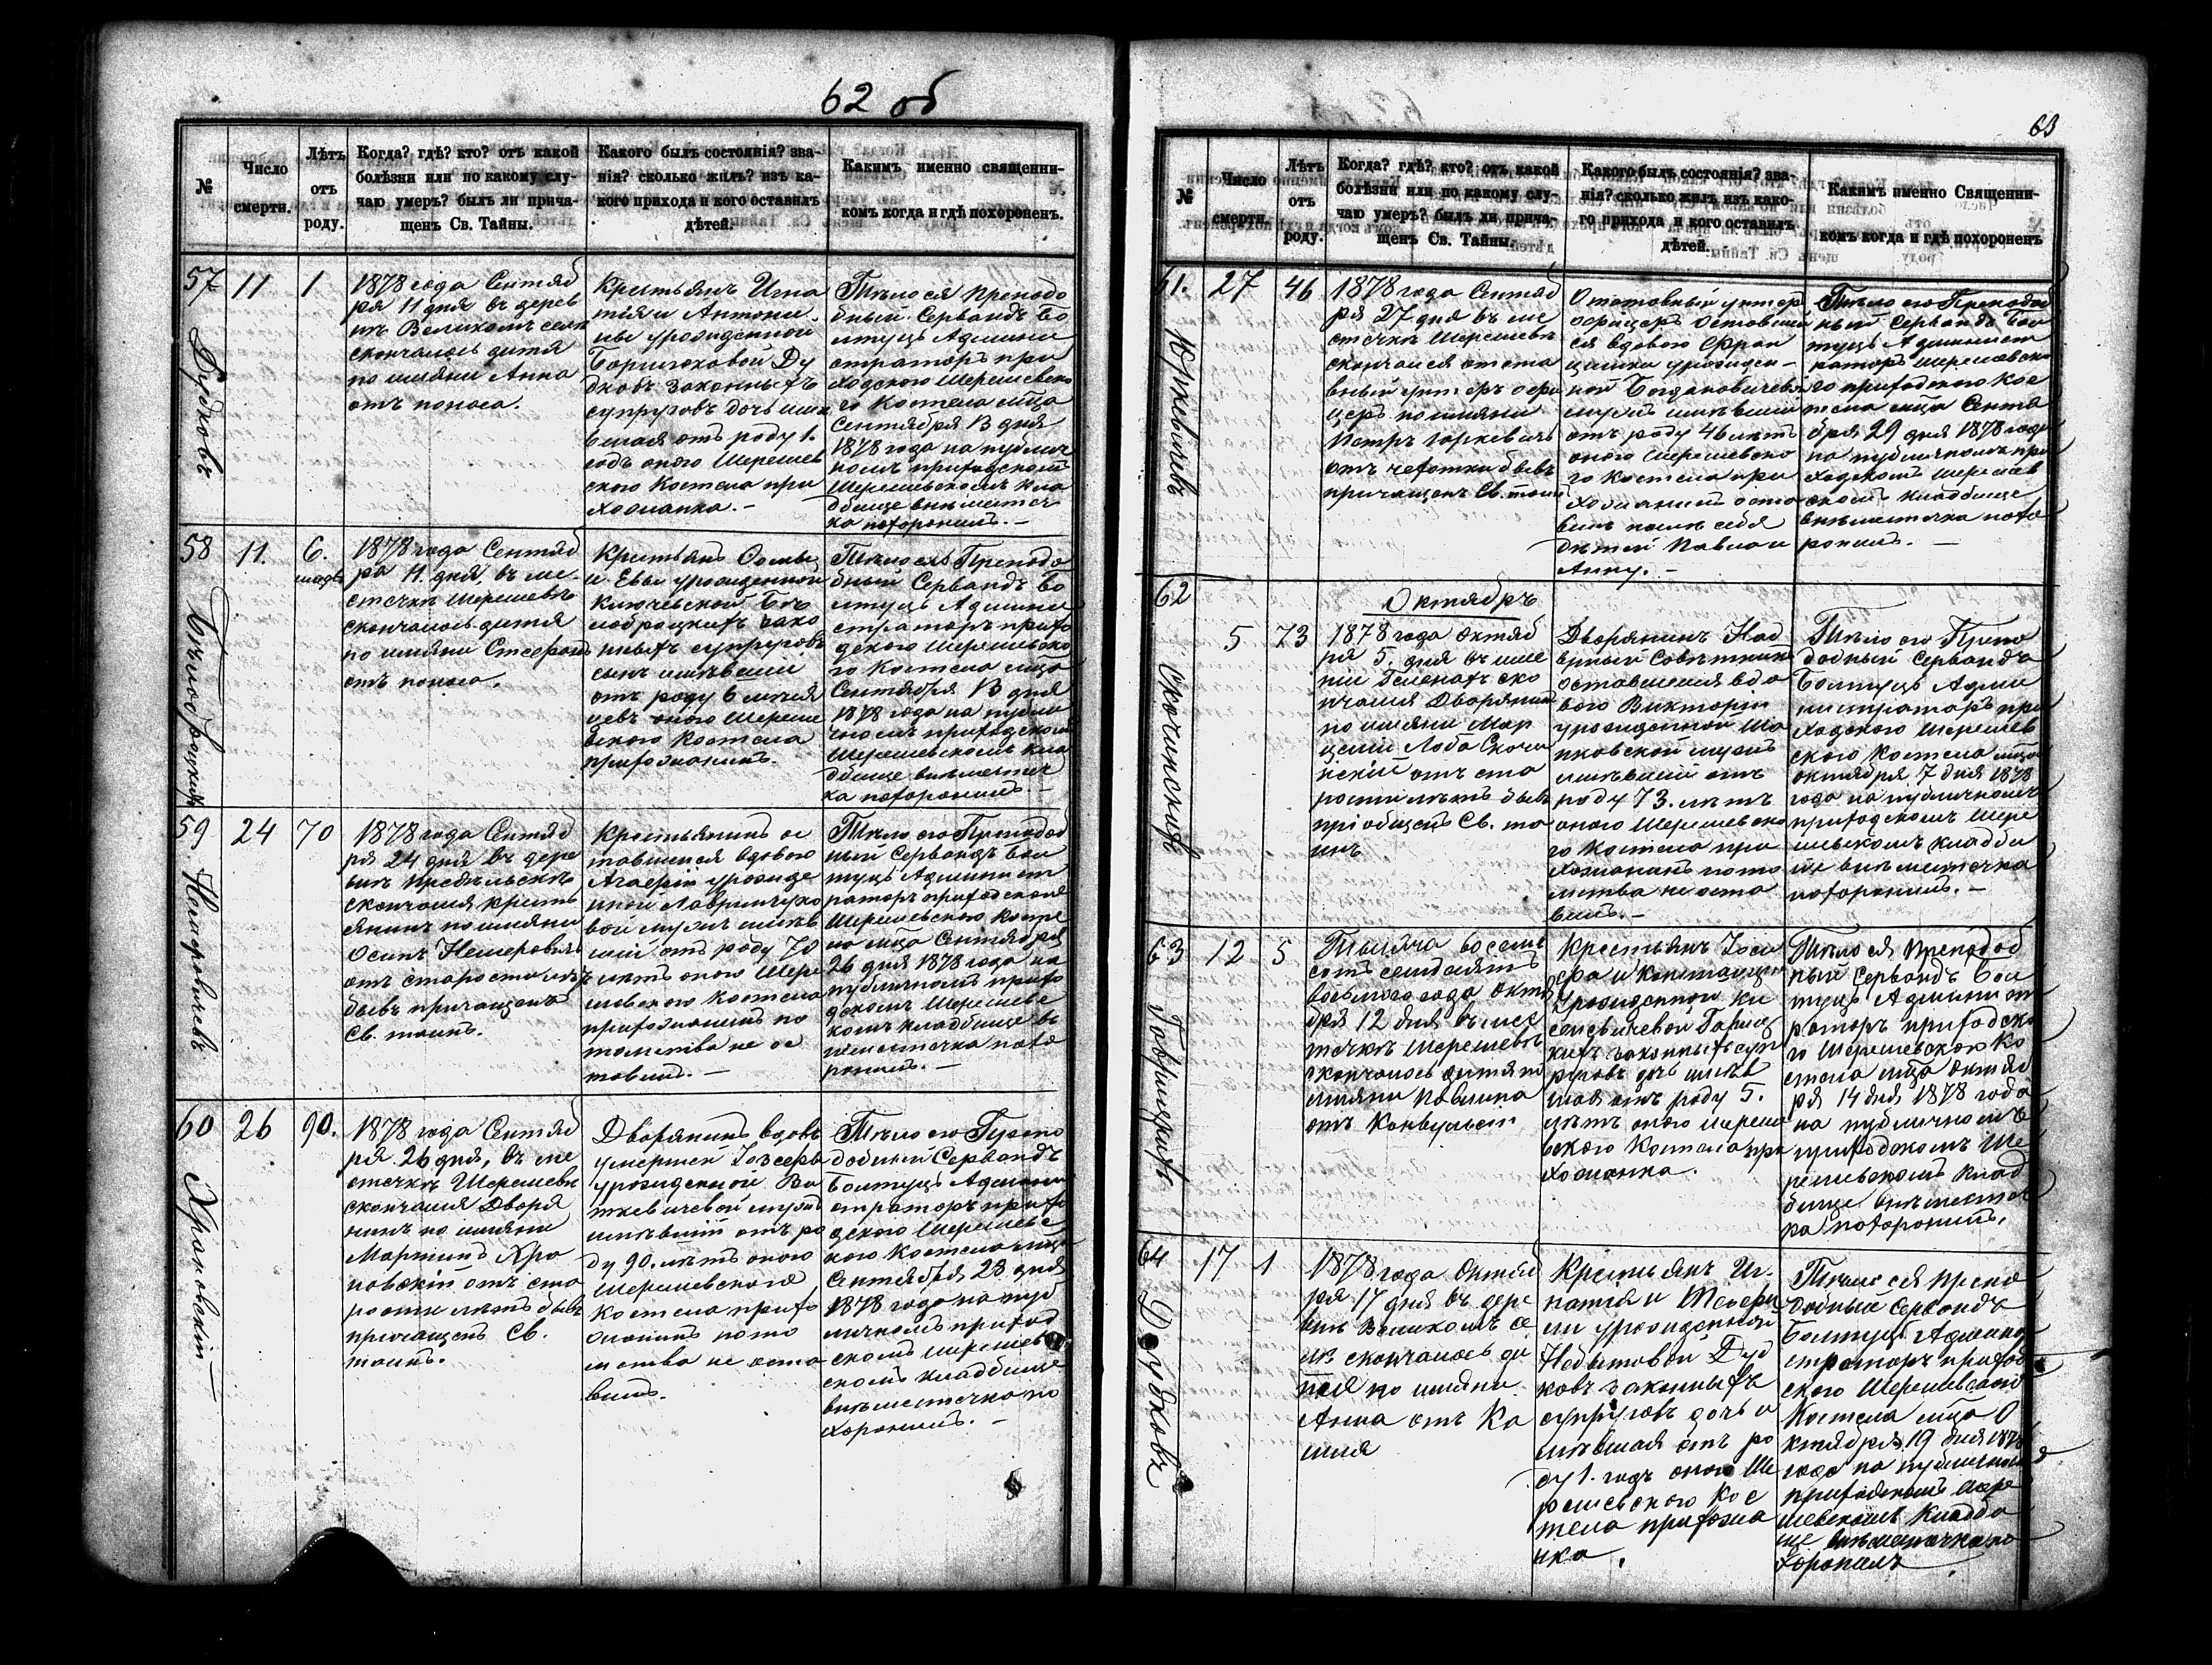 62 об
№
Число
смерти.
Лѣтъ
отъ
роду.
Когда? гдѣ? кто? отъ какой
болѣзни или по какому слу-
чаю умеръ? былъ ли прича-
щенъ Св. Тайны.
Какого былъ состоянія? зва-
нія? сколько жилъ? изъ ка-
кого прихода и кого оставилъ
дѣтей.
Какимъ именно священни-
комъ когда и гдѣ похороненъ.
57
Дудковъ
11
1
1878 года Сентяб
ря 11 дня въ дерев
нѣ Великомъ селѣ
скончалось дитя
по имяни Анна
отъ поноса.
Крестьянъ Игна
тія и Антони
ны урожденной
Ду
дковъ законныхъ
супруговъ дочь имѣ
вшая отъ роду 1.
годъ оного Шерешев
ского Костела при
хожанка. -
Тѣло ея Преподо
бный Сервандъ Бо
лтуць Админи
страторъ при
ходского Шерешевско
го Костела мѣца
Сентября 13 дня
1878 года на публич
номъ приходскомъ
Шерешевскомъ кла
дбище внѣ мѣстеч
ка похоронилъ. -
58
Бѣлобродскихъ
11.
6.
1878 года Сентяб
ря 11. дня, въ ме
стечкѣ Шерешевѣ
скончалось дитя
по имяни Стефанъ
отъ поноса.
Крестьянъ
и Евы урожденной
Ключевской Бѣ
лобродскихъ зако
нныхъ супруговъ
сынъ имѣвшій
отъ роду 6 мѣся
цевъ оного Шереше
вского Костела
прихожанинъ.
Тѣло его Преподо
бный Сервандъ Бо
лтуць Админи
страторъ прихо
дского Шерешевско
го Костела мѣца
Сентября 13 дня
1878 года на публи
чномъ приходскомъ
Шерешевскомъ кла
дбище внѣ мѣстеч
ка похоронилъ. -
59
Немеровичъ
24
70
1878 года Сентяб
ря 24 дня въ дере
внѣ
скончался крестъ
янинъ по имяни
Осипъ Немеровичъ
отъ старости лѣтъ
бывъ причащенъ
Св. таинъ.
Крестьянинъ ос
тавшейся вдовою
Агафіи урожде
нной Лавринчуко
вой мужъ имѣв
шій отъ роду 70
лѣтъ оного Шере
шевского Костела
прихожанинъ по
томства не ос
тавилъ. -
Тѣло его Преподоб
ный Сервандъ Бол
туць Админист
раторъ приходского
Шерешевского Косте
ла мѣца Сентября
26 дня 1878 года на
публичномъ прихо
дскомъ Шерешевс
комъ кладбище вн
ѣ местечка похо
ронилъ. -
60
Хроновскій
26
90.
1878 года Сентяб
ря 26 дня, въ ме
стечкѣ Шерешевѣ
скончался Дворя
нинъ по имяни
Мартинъ Хро
новскій отъ ста
рости лѣтъ бывъ
причащенъ Св.
таинъ.
Дворянинъ вдовъ
умершей Іозефы
урожденной Ви
ткевичевой мужъ
имѣвшій отъ ро
ду 90. лѣтъ оного
Шерешевского
Костела прихо
жанинъ пото
мства не оста
вилъ.
Тѣло его Препо
добный Сервандъ
Болтуць Админи
страторъ прихо
дского Шерешевс
кого Костела мѣца
Сентября 28 дня
1878 года на пуб
личномъ приход
скомъ Шерешев
скомъ кладбище
внѣ местечка по
хоронилъ. -
63
№
Число
смерти.
Лѣтъ
отъ
роду.
Когда? гдѣ? кто? отъ какой
болѣзни или по какому слу-
чаю умеръ? былъ ли прича-
щенъ Св. Тайны.
Какого былъ состоянія? зва-
нія? сколько жилъ изъ како-
го прихода и кого оставилъ
дѣтей.
Какимъ именно Священни-
комъ когда и гдѣ похороненъ
61.
Юркевичъ
27
46
1878 года Сентяб
ря 27 дня въ ме
стечкѣ Шерешевѣ
скончался отста
вный унтеръ офи
церъ по имяни
Петръ Юркевичъ
отъ чахотки бывъ
причащенъ Св. таинъ
Отставный унтеръ
офицеръ оставшей
ся вдовою Фран
цишки урожден-
ной Богдановичевой
мужъ имѣвшій
отъ роду 46 лѣтъ
оного Шерешевско
го Костела при
хожанинъ оста
вилъ послѣ себя
дѣтей Павла и
Анну. -
Тѣло его Преподоб
ный Сервандъ Бол
туць Админист
раторъ Шерешевско
го приходского Кос
тела мѣца Сентя
бря 29 дня 1878 года
на публичномъ при
ходскомъ Шерешев
скомъ кладбище
внѣ местечка похо
ронилъ. -
62
Скочинскій
Октябрь
5
73
1878 года Октяб
ря 5. дня въ име
ніи ско
нчался Дворянинъ
по имяни Мар
целій Лоба Скочи
нскій отъ ста
рости лѣтъ бывъ
пріобщенъ Св. та
инъ
Дворянинъ Над
ворный Совѣтникъ
оставшейся вдо
вою Викторіи
урожденной
мужъ
имѣвшій отъ
роду 73. лѣтъ
оного Шерешевско
го Костела при
хожанинъ пото
мства не оста
вилъ. -
Тѣло его Препо
добный Сервандъ
Болтуць Адми
нистраторъ при
ходского Шерешев
ского Костела мѣца
Октября 7 дня 1878
года на публичномъ
приходскомъ Шере
шевскомъ кладби
ще внѣ местечка
похоронилъ. -
63
12
5
Тысяча восемь
сотъ семдесятъ
восьмого года Октя
бря 12 дня въ мес
течкѣ Шерешевѣ
скончалось дитя по
имяни Павлина
отъ Конвульсіи
Крестьянъ Іоси
фа и Констанціи
урожденной
законныхъ суп
руговъ дочь имѣв
шая отъ роду 5.
лѣтъ оного Шереше
вского Костела при
хожанка.
Тѣло ея Преподоб
ный Сервандъ Бол
туць Админист
раторъ приходско
го Шерешевского Ко
стела мѣца Октяб
ря 14 дня 1878 года
на публичномъ
приходскомъ Ше
решевскомъ клад
бище внѣ местеч
ка похоронилъ.
64
Дудковъ
17
1
1878 года Октяб
ря 17 дня въ дере
внѣ Великомъ се
лѣ скончалось ди
тя по имяни
Анна отъ Ка
шля
Крестьянъ Иг
натія и
урожденной
Дуд
ковъ законныхъ
супруговъ дочь и
мѣвшая отъ ро
ду 1. годъ оного Ше
решевского Кос
тела прихожа
нка.
Тѣло ея Препо
добный Сервандъ
Болтуць Админи
страторъ приход
ского Шерешевского
Костела мѣца О
ктября 19 дня 1878
года на публичномъ
приходскомъ Шере
шевскомъ Кладби
ще внѣ местечка по
хоронилъ